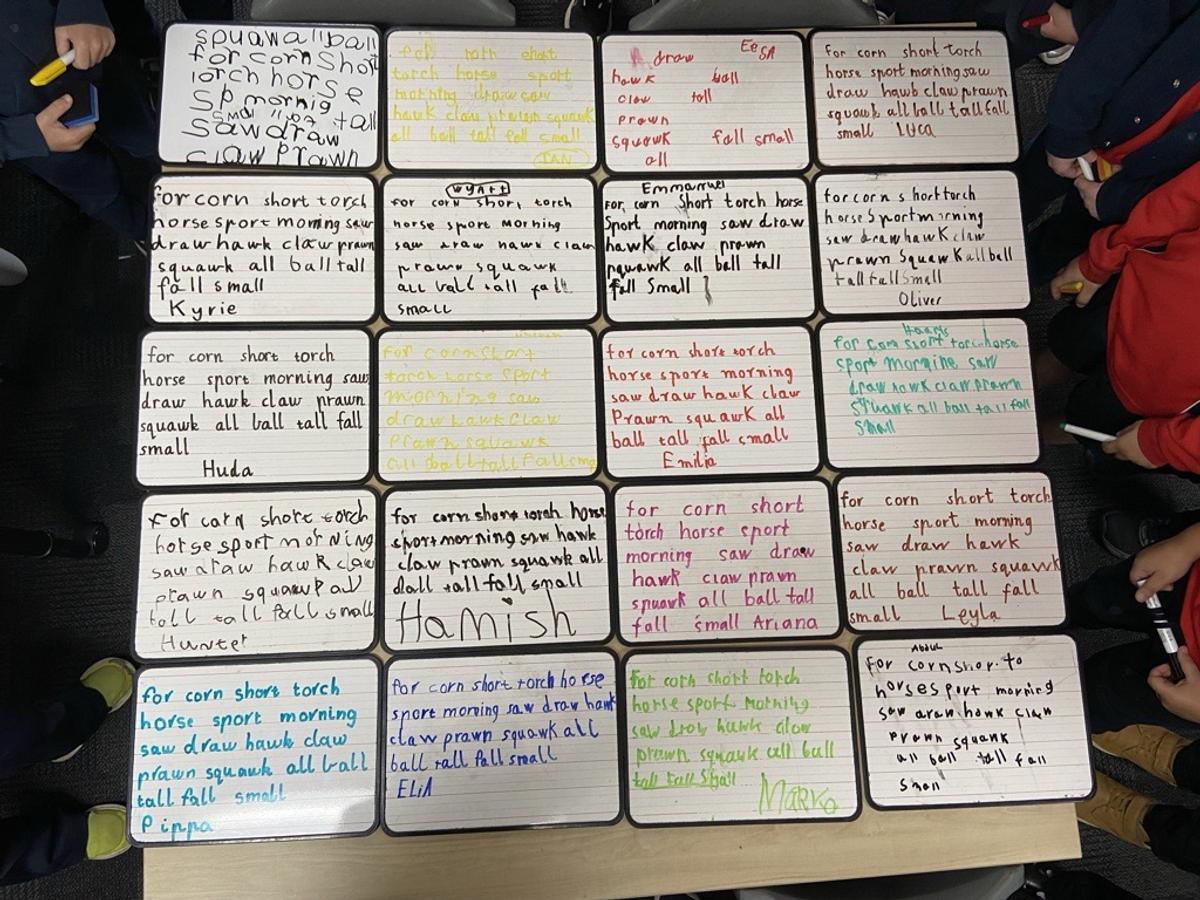 spuawallball
for corn Shot
torch horse
Sp mornig
Small tall
Saw draw
Claw Prawn
torch horse sport
morning draw saw
hawk claw prawn squawk
all ball tall fall small
IAN
EeSA
draw
hawk ball
claw tall
prawn
squawk fall small
all
for corn short torch
horse sport morning saw
draw hawk claw prawn
squawk all ball tall fall
small Luca
for corn short torch
horse sport morning saw
draw hawk claw prawn
squawk all ball tall
fall small
Kyrie
Wyatt
for corn short torch
horse sport Morning
saw draw hawk claw
prawn squawk
all ball tall fall
small
Emmanuel
For, corn Short torch horse
Sport morning saw draw
hawk claw prawn
pquawk all ball tall
fall Small
for corn short torch
horse Sport morning
saw draw hawk claw
prawn Squawk all ball
tall fall Small
Oliver
for corn short torch
horse sport morning saw
draw hawk claw prawn
squawk all ball tall fall
small
Huda
For corn short
torch horse sport
morning saw
draw hawk claw
Prawn squawk
all ball tall fall sma
for corn short torch
horse sport morning
saw draw hawk claw
Prawn squawk all
ball tall fall small
Emilia
Haaris
for corn short torc horse
sport morning saw
draw hawk claw prawn
squawk all ball tall fall
Small
For carn short torch
horse sport morning
saw draw hawk claw
prawn squawk all
ball tall fall small
Hunter
for corn short torch horse
sport morning saw hawk
claw prawn squawk all
dall tall fall small
Hamish
for corn short
torch horse sport
morning saw draw
hawk claw prawn
spuawk all ball tall
fall small Ariana
for corn short torch
horse sport morning
saw draw hawk
claw prawn squawk
all ball tall fall
small Leyla
for corn short torch
horse sport morning
saw draw hawk claw
prawn squawk all ball
tall fall small
Pippa
for corn short torch horse
sport morning saw draw hawk
claw prawn squawk all
ball tall fall small
ELiA
for corn short torch
horse sport morning
saw drow hawk clow
prawn squawk all ball
tall fall Small
Marko
Abdul
For corn shor to
horse sport morning
saw draw hawk claw
prawn squank
all ball tall fall
Small